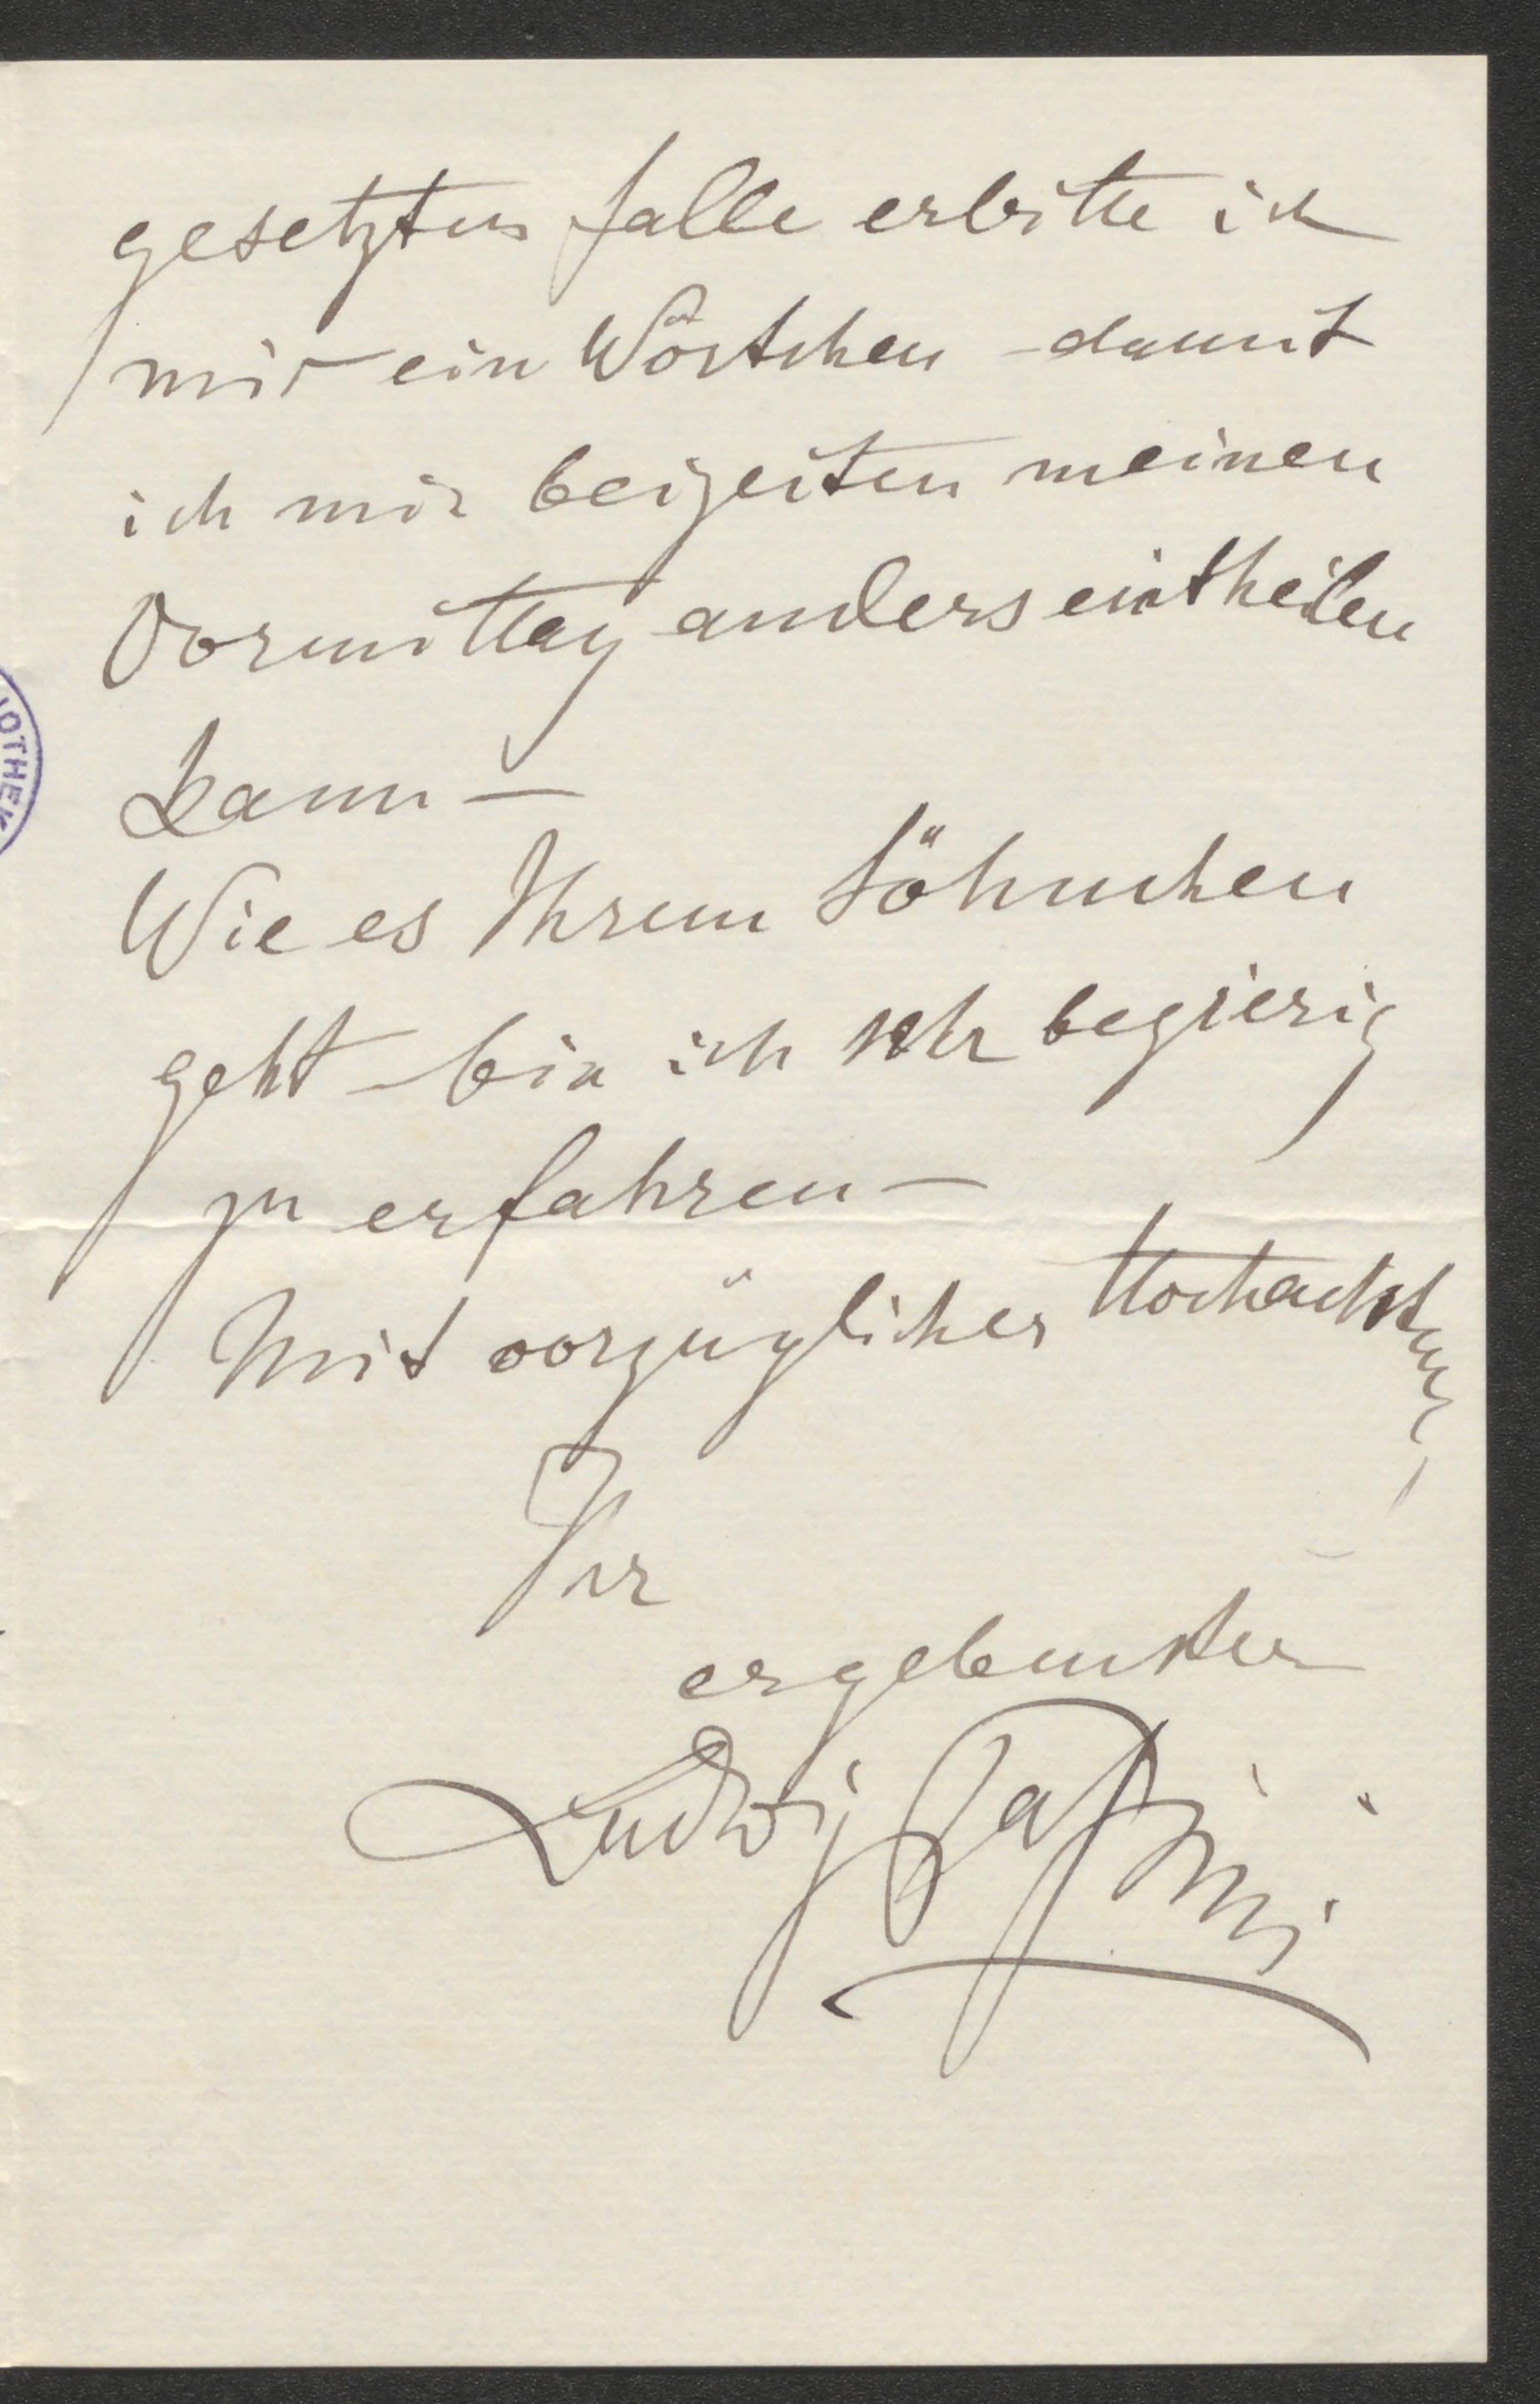 gesetzten Falle erbitte ich
mir ein Wörtchen – damit
ich mir beizeiten meinen
Vormittag anders eintheilen
kann –
Wie es Ihrem Söhnchen
geht – bin ich sehr begierig
zu erfahren –
Mit vorzüglicher Hochachtung
Ihr
ergebenster
Ludwig Passini
IOTHEK